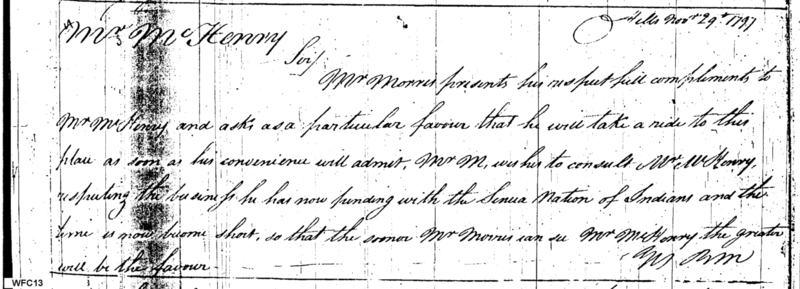 Hills Novr 29th 1797
Mr McHenry
Sir
Mr Morris presents his respectfull compliments to
Mr McHenry and asks as a particular favour that he will take a ride to this
place as soon as his convenience will admit, Mr M, wishes to consult Mr McHenry
respecting the business he has now pending with the Seneca Nation of Indians and the
time is now become short, so that the sooner Mr Morris can see Mr McHenry the greater
will be the favour
RM
WFC13